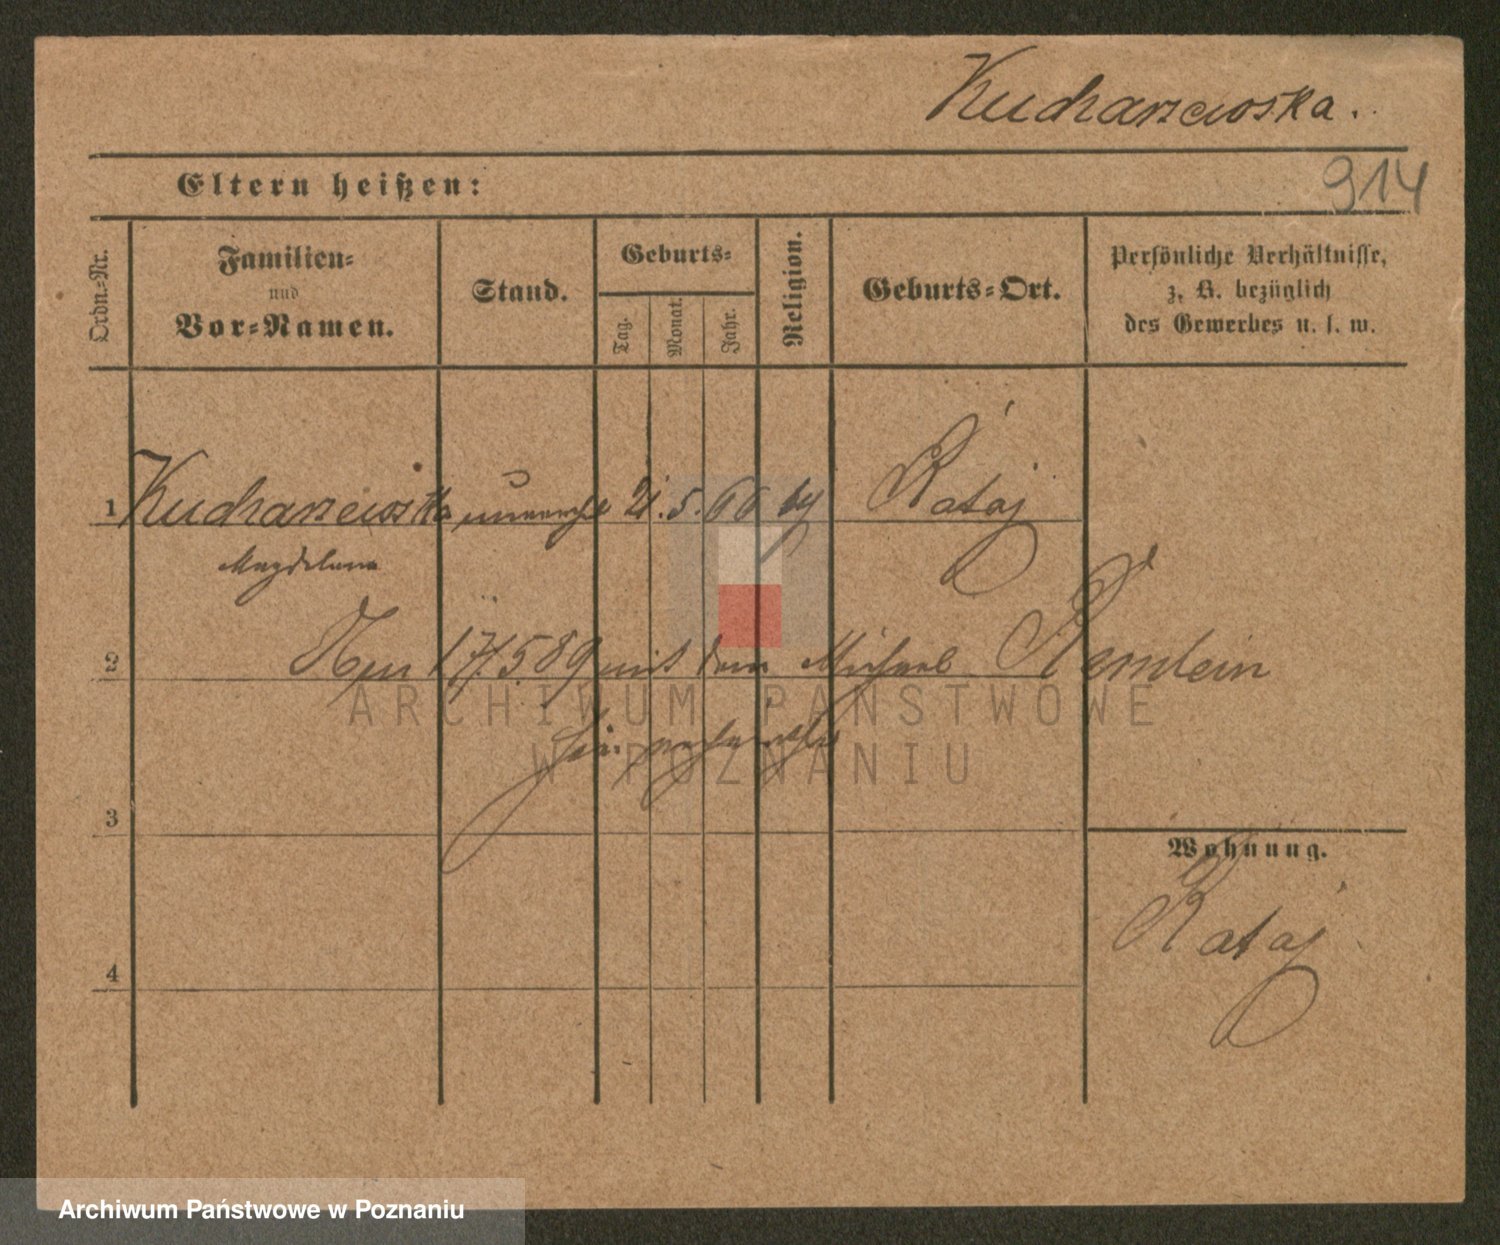 Kucharzewska.
914
Eltern heißen:
Ordn.-Nr.
Familien-
und
Vor-Namen.
Stand.
Geburts-
Tag.
Monat.
Jahr.
Religion.
Geburts-Ort.
Persönliche Verhältnisse,
z. B. bezüglich
des Gewerbes u. s. w.
1 Kucharzewska unverehl 21. 5. 66 Rataj
Magdalena
2 17/5.89 mit dem Michael
hier
3
Wohnung.
Rataj
4
ARCHIWUM PAŃSTWOWE
W POZNANIU
Archiwum Państwowe w Poznaniu